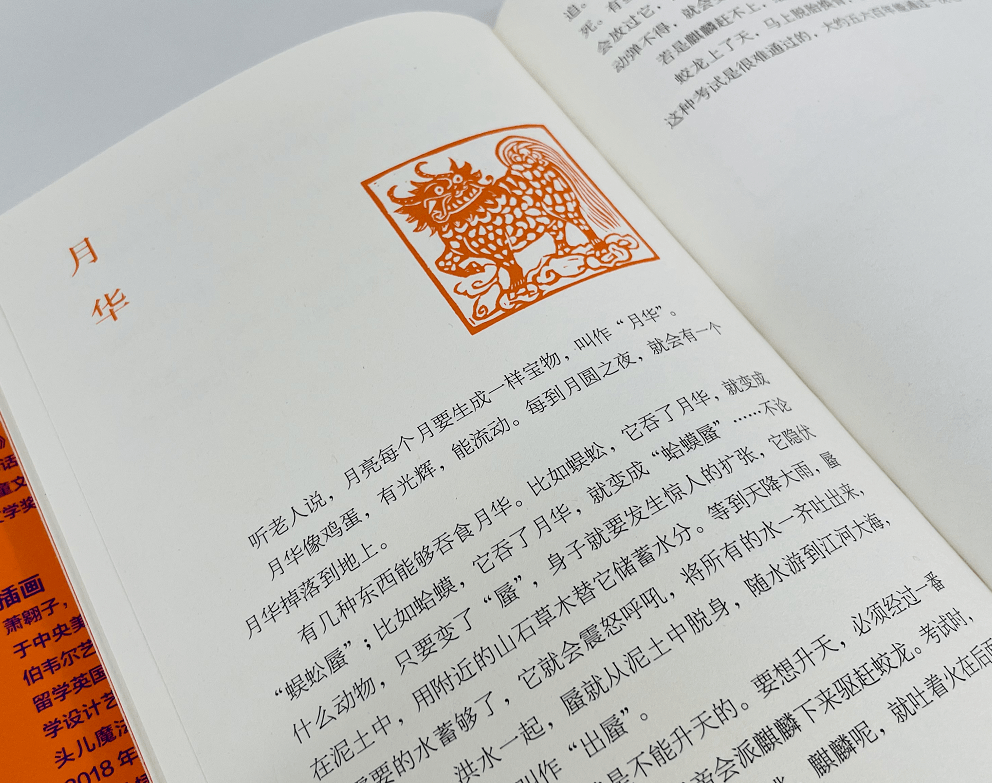 月
华
听老人说，月亮每个月要生成一样宝物，叫作“月华”。
月华像鸡蛋，有光辉，能流动。每到月圆之夜，就会有一个
月华掉落到地上。
有几种东西能够吞食月华。比如蜈蚣，它吞了月华，就变成
“蜈蚣蜃”；比如蛤蟆，它吞了月华，就变成“蛤蟆蜃”……不论
什么动物，只要变了“蜃”，身子就要发生惊人的扩张，它隐伏
在泥土中，用附近的山石草木替它储蓄水分。等到天降大雨，蜃
需要的水蓄够了，它就会震怒呼吼，将所有的水一齐吐出来，
洪水一起，蜃就从泥土中脱身，随水游到江河大海，
叫作“出蜃”。
是不能升天的。要想升天，必须经过一番
帝会派麒麟下来驱赶蛟龙。考试时，
麒麟呢，就吐着火在后面
道。
死。有
会放过它，
动弹不得，就会
若是麒麟赶不上，
蛟龙上了天，马上脱胎换骨
这种考试是很难通过的，大约五六百年
话
童文
文学奖
插画
萧翱子，
于中央美
伯韦尔艺
留学英国
学设计艺
头儿魔法
2018 年